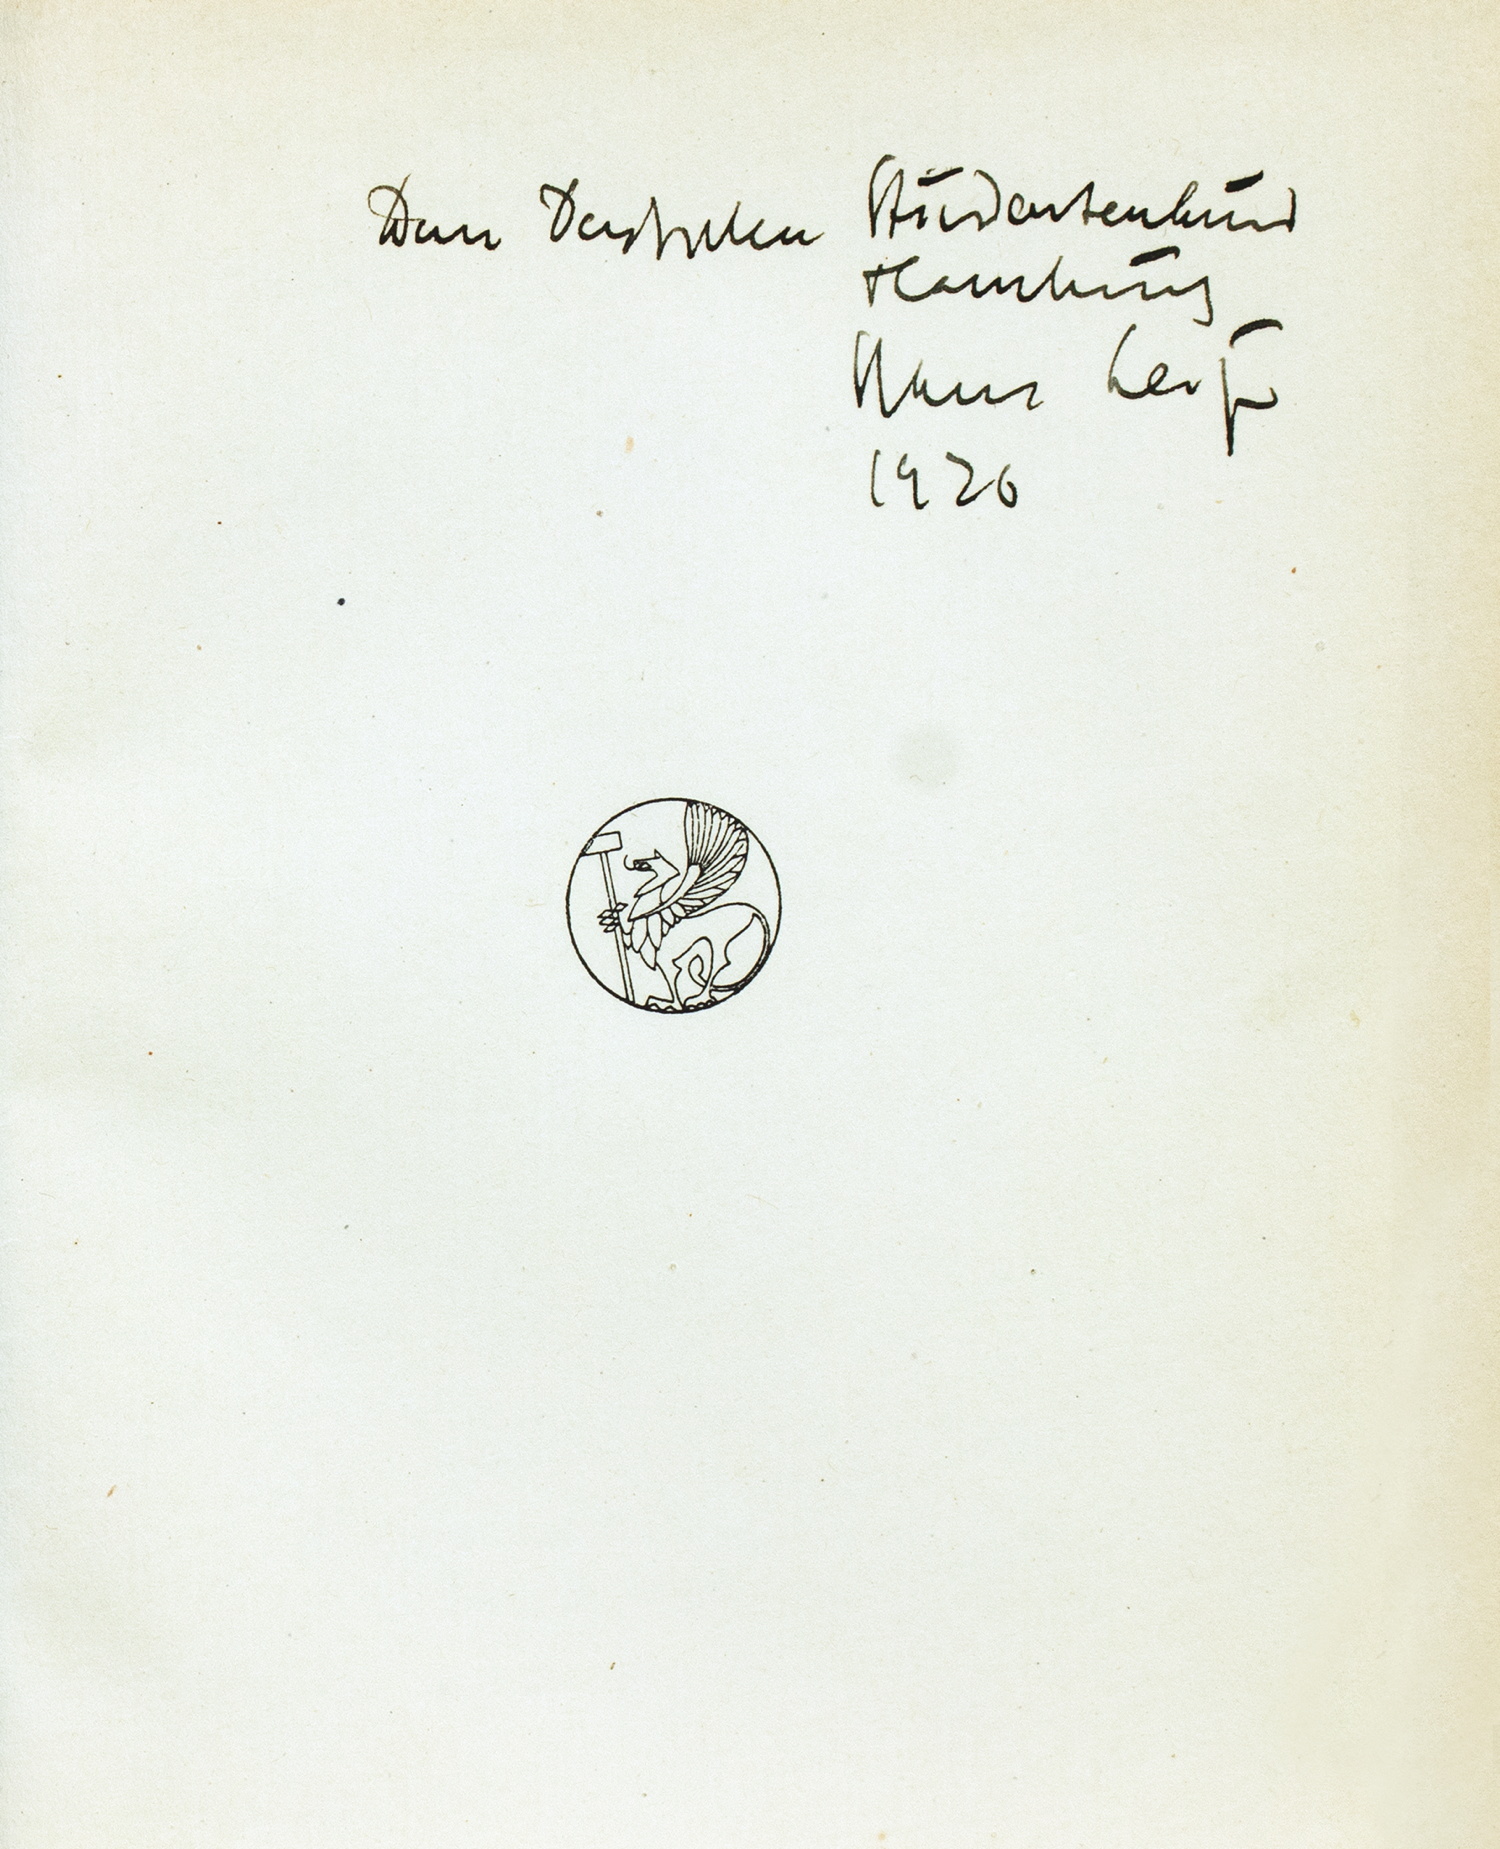 Dem Deutschen Studentenbund
Hamburg
Hans Leip
1926